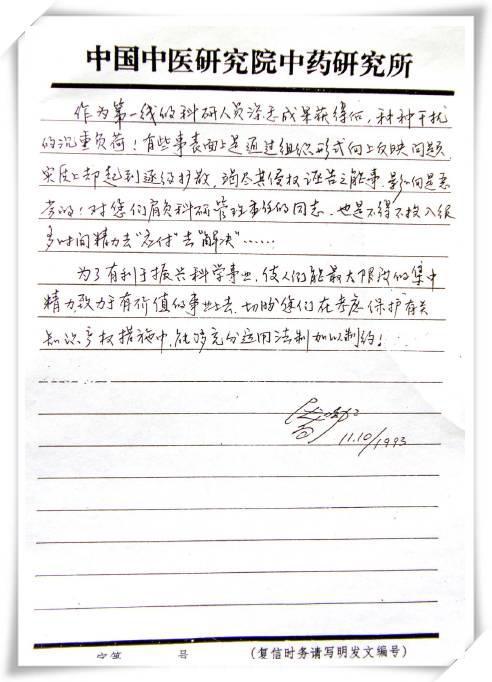 中国中医研究院中药研究所
作为第一线的科研人员深知成果获得后，种种干扰
的沉重负荷！有些事表面上是通过组织形式向上反映问题，
实质上却起到逐级扩散，竭尽其侵权诬告之能事，影响是恶
劣的！对您们肩负科研管理责任的同志，也是不得不投入很
多时间精力去“应付”去“解决”……
为了有利于振兴科学事业，使人们能最大限度的集中
精力致力于有价值的事业上去，切盼您们在考虑保护有关
知识产权措施中，能够充分运用法制加以制约！
11.10/1993
字第 号 （复信时务请写明发文编号）